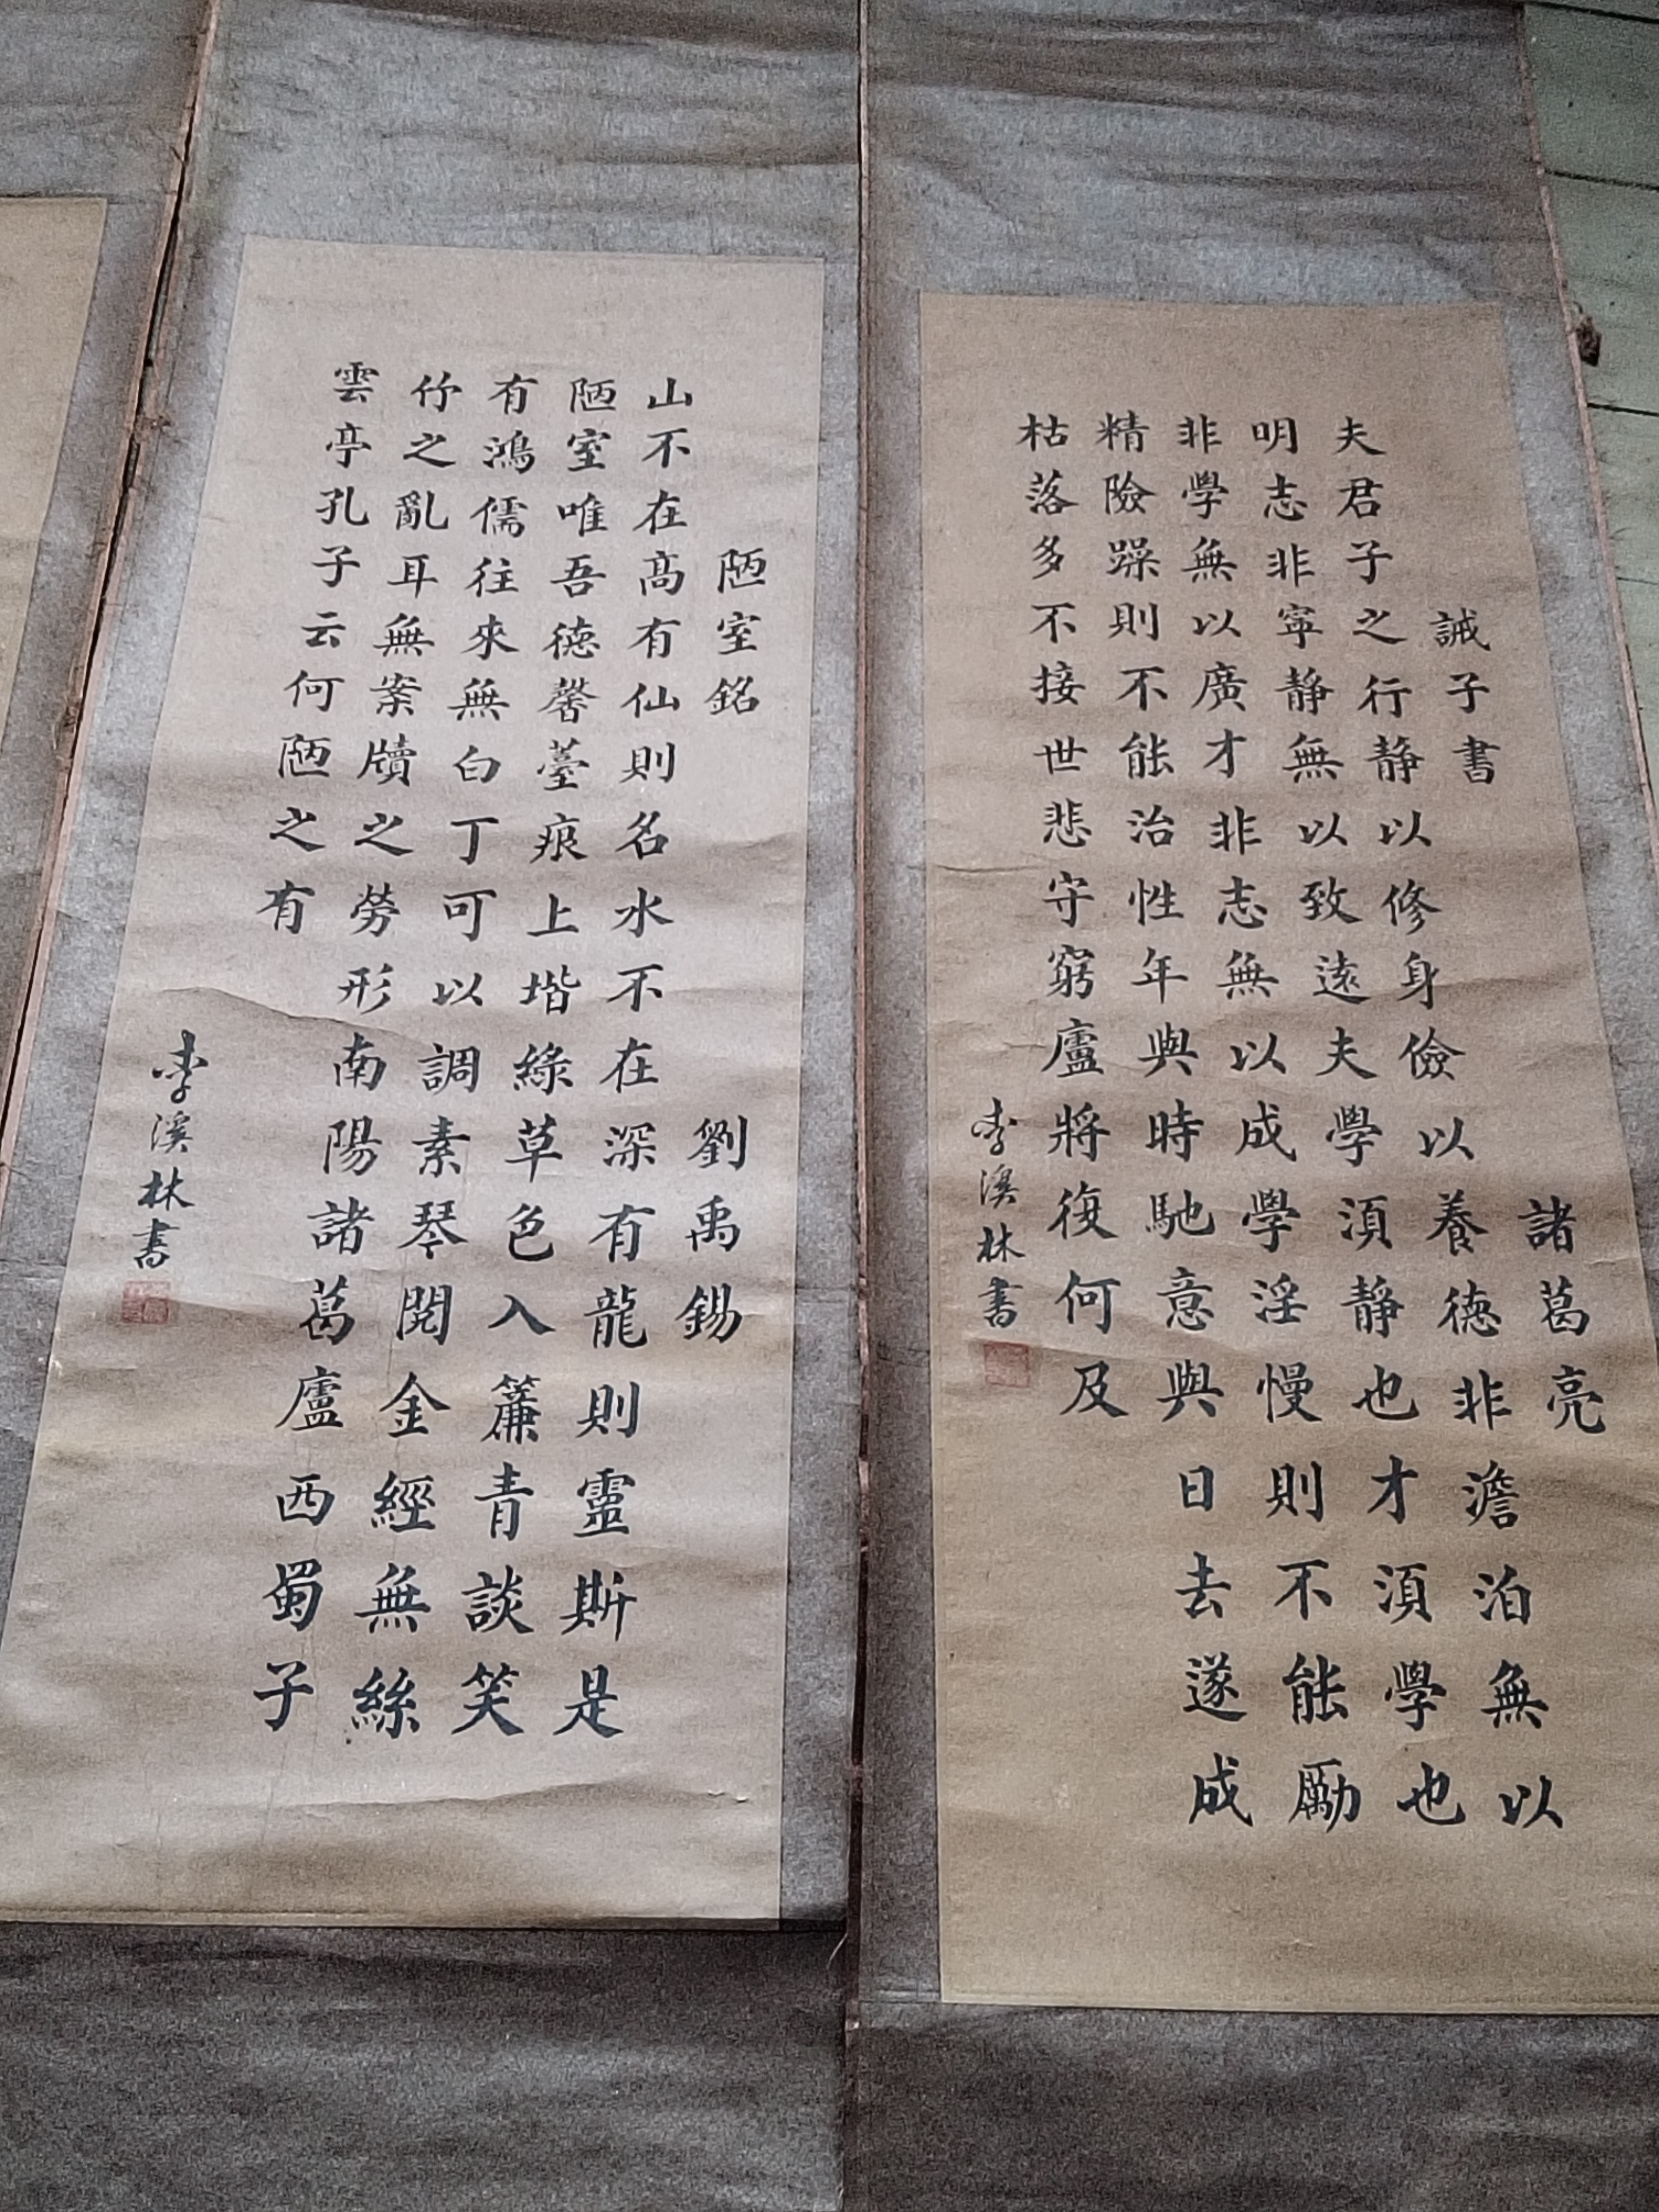 誡子書 諸葛亮
夫君子之行静以修身儉以養德非澹泊無以
明志非寜静無以致遠夫學湏静也才湏學也
非學無以廣才非志無以成學淫慢則不能勵
精險躁則不能治性年與時馳意與日去遂成
枯落多不接世悲守窮廬將復何及
李溪林書
陋室銘 劉禹錫
山不在高有仙則名水不在深有龍則靈斯是
陋室唯吾德馨薹痕上堦綠草色入簾青談笑
有鴻儒往來無白丁可以調素琴閱金經無絲
竹之亂耳無案牘之勞形南陽諸葛廬西蜀子
雲亭孔子云何陋之有
李溪林書